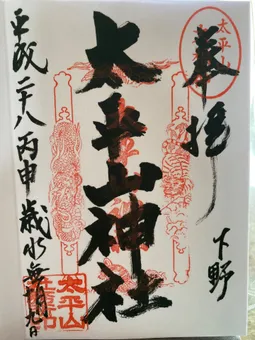 奉拝
下野
太平山神社
平成二十八丙申歳水無月九日
太平山